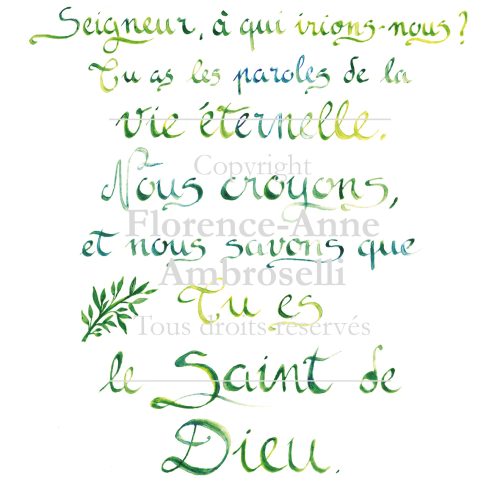 Seigneur, à qui irions-nous?
Tu as les paroles de la
vie éternelle.
Copyright
Nous croyons,
Florence-Anne
et nous savons que
Ambroselli
Tu es
Tous droits réservés
le Saint de
Dieu.